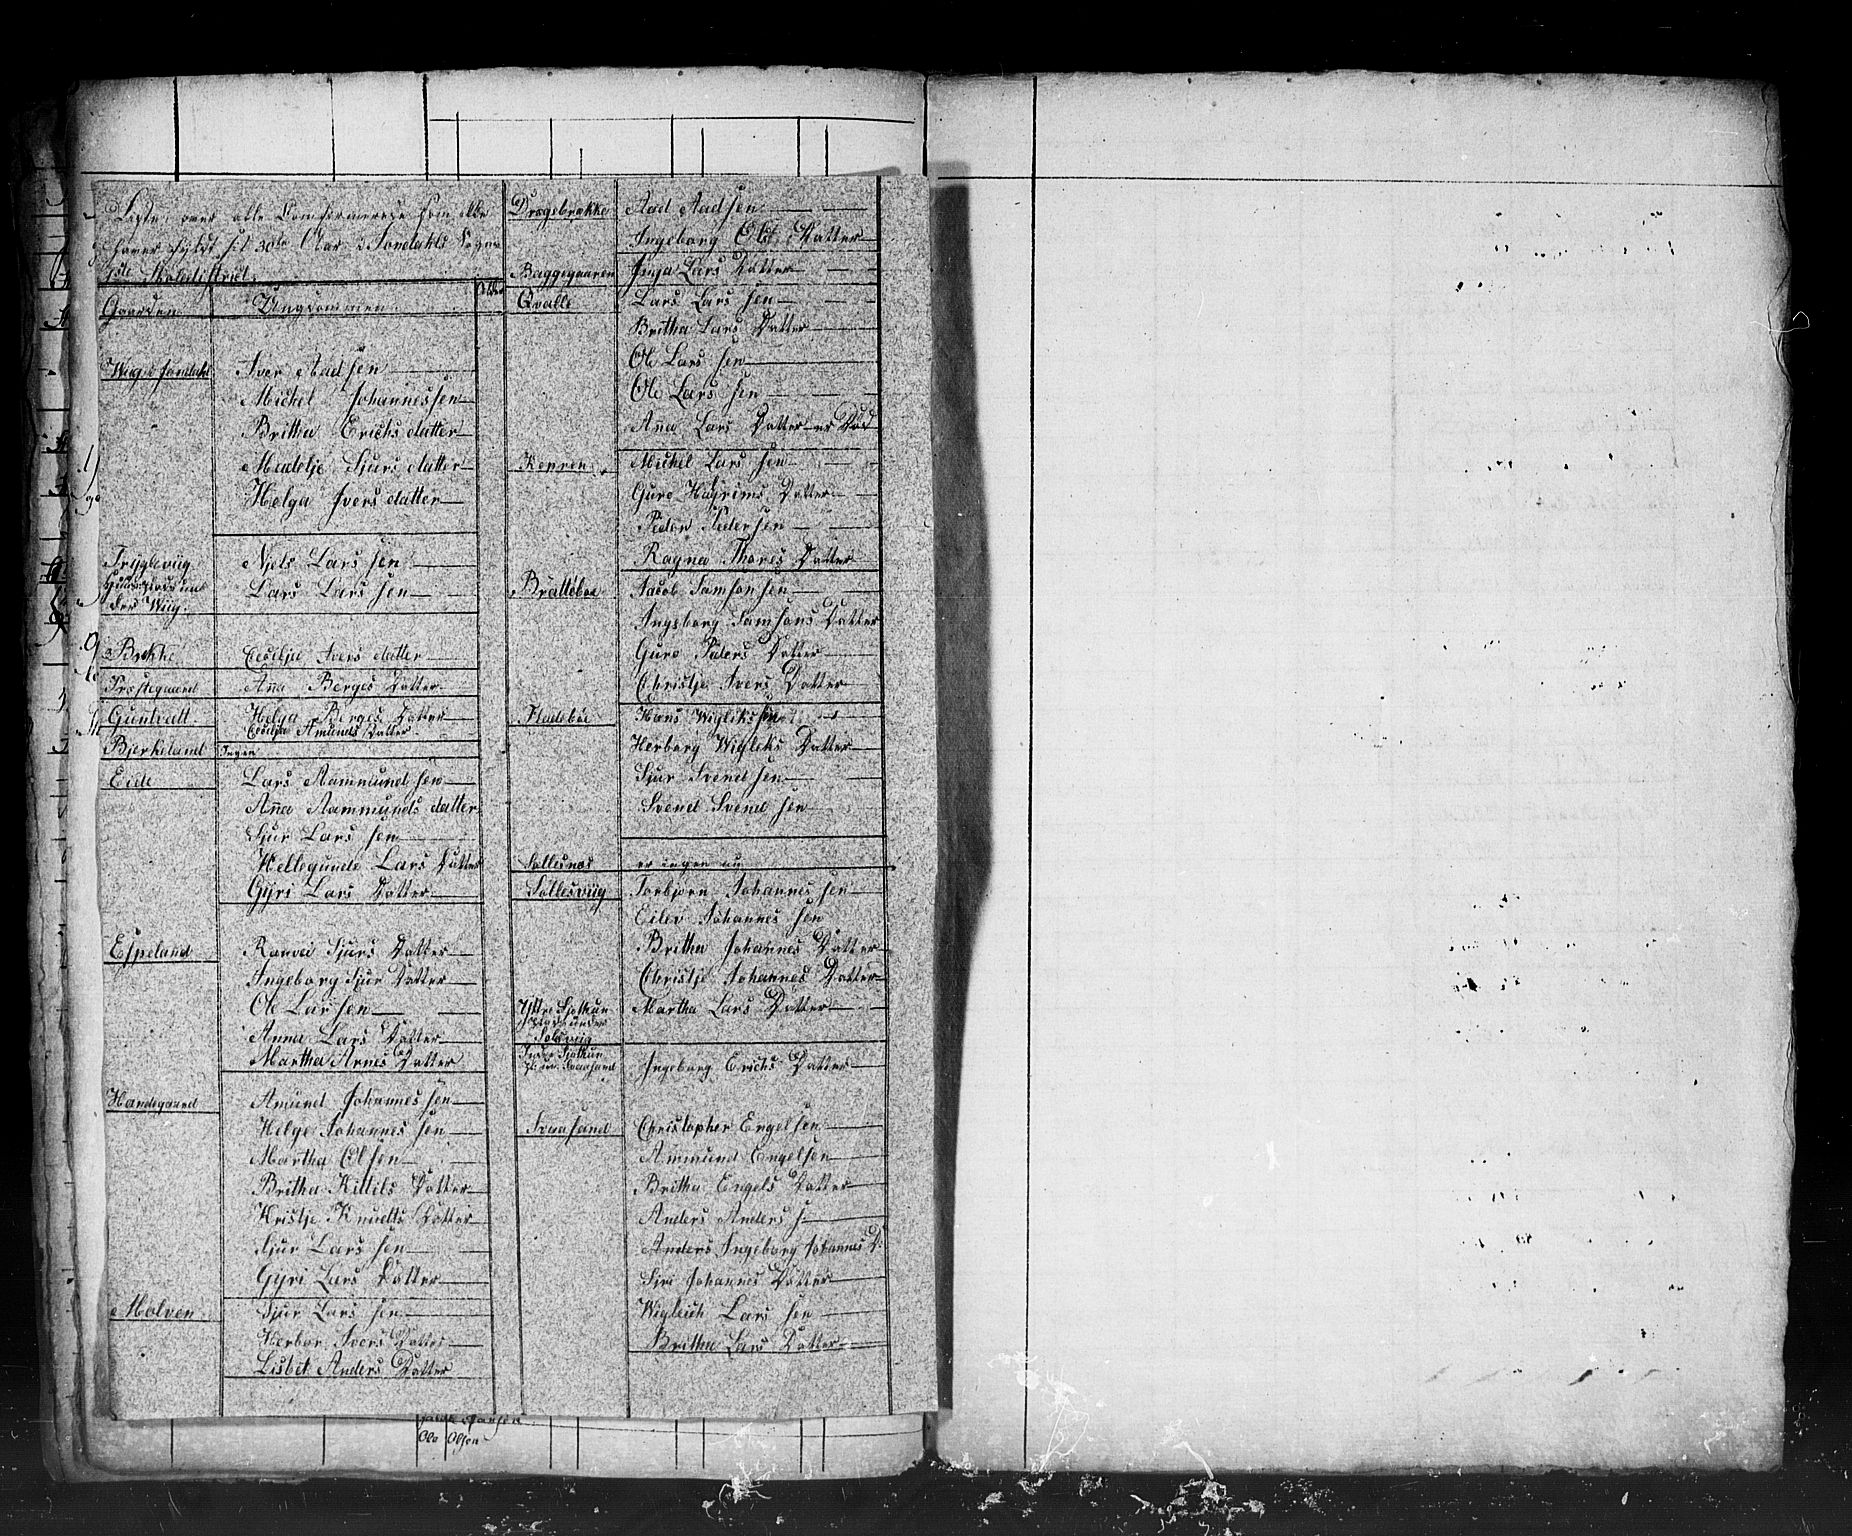 Liste over alle Confirmerede som ikke
haver fyldt sit 30te Aar i Jondahls Sogn
1ste Skoledistrict.
Gaarden Ungdommen Alder
Wiig i Jondahl Iver Aadsen
Michel Johannessen
Britha Erichs datter
Madelje Sjurs datter
Helga Ivers datter
Tryglevиig Niels Lars sen
Huusmænd un
der Wiig. Lars Lars sen
Brekke Cecilja Ivers datter
Præstegaard Aña Berges Datter
Guntvett Helga Berges Datter
Cecilja Amunds Datter
Bjerkeland Ingen
Eide Lars Aammund sen
Aña Aammunds datter
Sjur Lars sen
Hellegunde Lars Datter
Gyri Lars Datter
Espeland Ranvei Sjurs Datter
Ingeborg Sjur Datter
Ole Larssen
Anna Lars Datter
Martha Arnes Datter
Handegaard Amund Johannes sen
Helge Johannes sen
Martha Olsen
Britha Kittils Datter
Kristje Knudts Datter
Sjur Lars sen
Gyri Lars Datter
Molven Sjur Lars sen
Herbor Ivers Datter
Lisbet Anders Datter
Drægebrække Aad Aadsen
Ingeborg Ols Datter
Baggegaaren Inga Lars Datter
Qvalle Lars Lars sen
Britha Lars Datter
Ole Lars sen
Ole Lars sen
Aña Lars Datter er Død
Kerren Michel Lars sen
Guro Datter
Peder Peder sen
Ragna Thores Datter
Brattebøe Jacob Samsonsen
Ingeborg Samsons Datter
Guro Peders Datter
Christje Ivers Datter
Fladebøe Hans Wigliksen
Herborg Wigleks Datter
Sjur Svend sen
Svend Svend sen
Sollesnæs er ingen nu
Sollesviig Torbjørn Johannes sen
Eilev Johannes sen
Britha Johannes Datter
Christje Johannes Datter
Ystre Sjothun Martha Lars Datter
plads under
Solsviig
Indre Sjothun
pl: un: Svaasand Ingeborg Erichs Datter
Svaasand Christopher Engelsen
Ammund Engelsen
Britha Engels Datter
Anders Anders s
Anders Ingeborg Johannes D:
Siri Johannes Datter
Wigleich Lars sen
Britha Lars Datter
Hansen
Ole Olsen